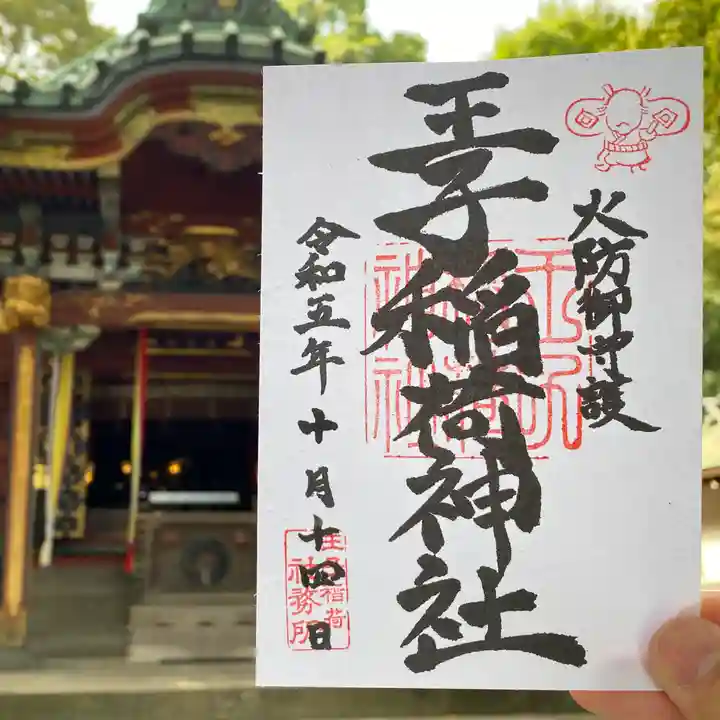 火防御守護
王子稲荷神社
令和五年十月十四日
王子稲荷
社務所